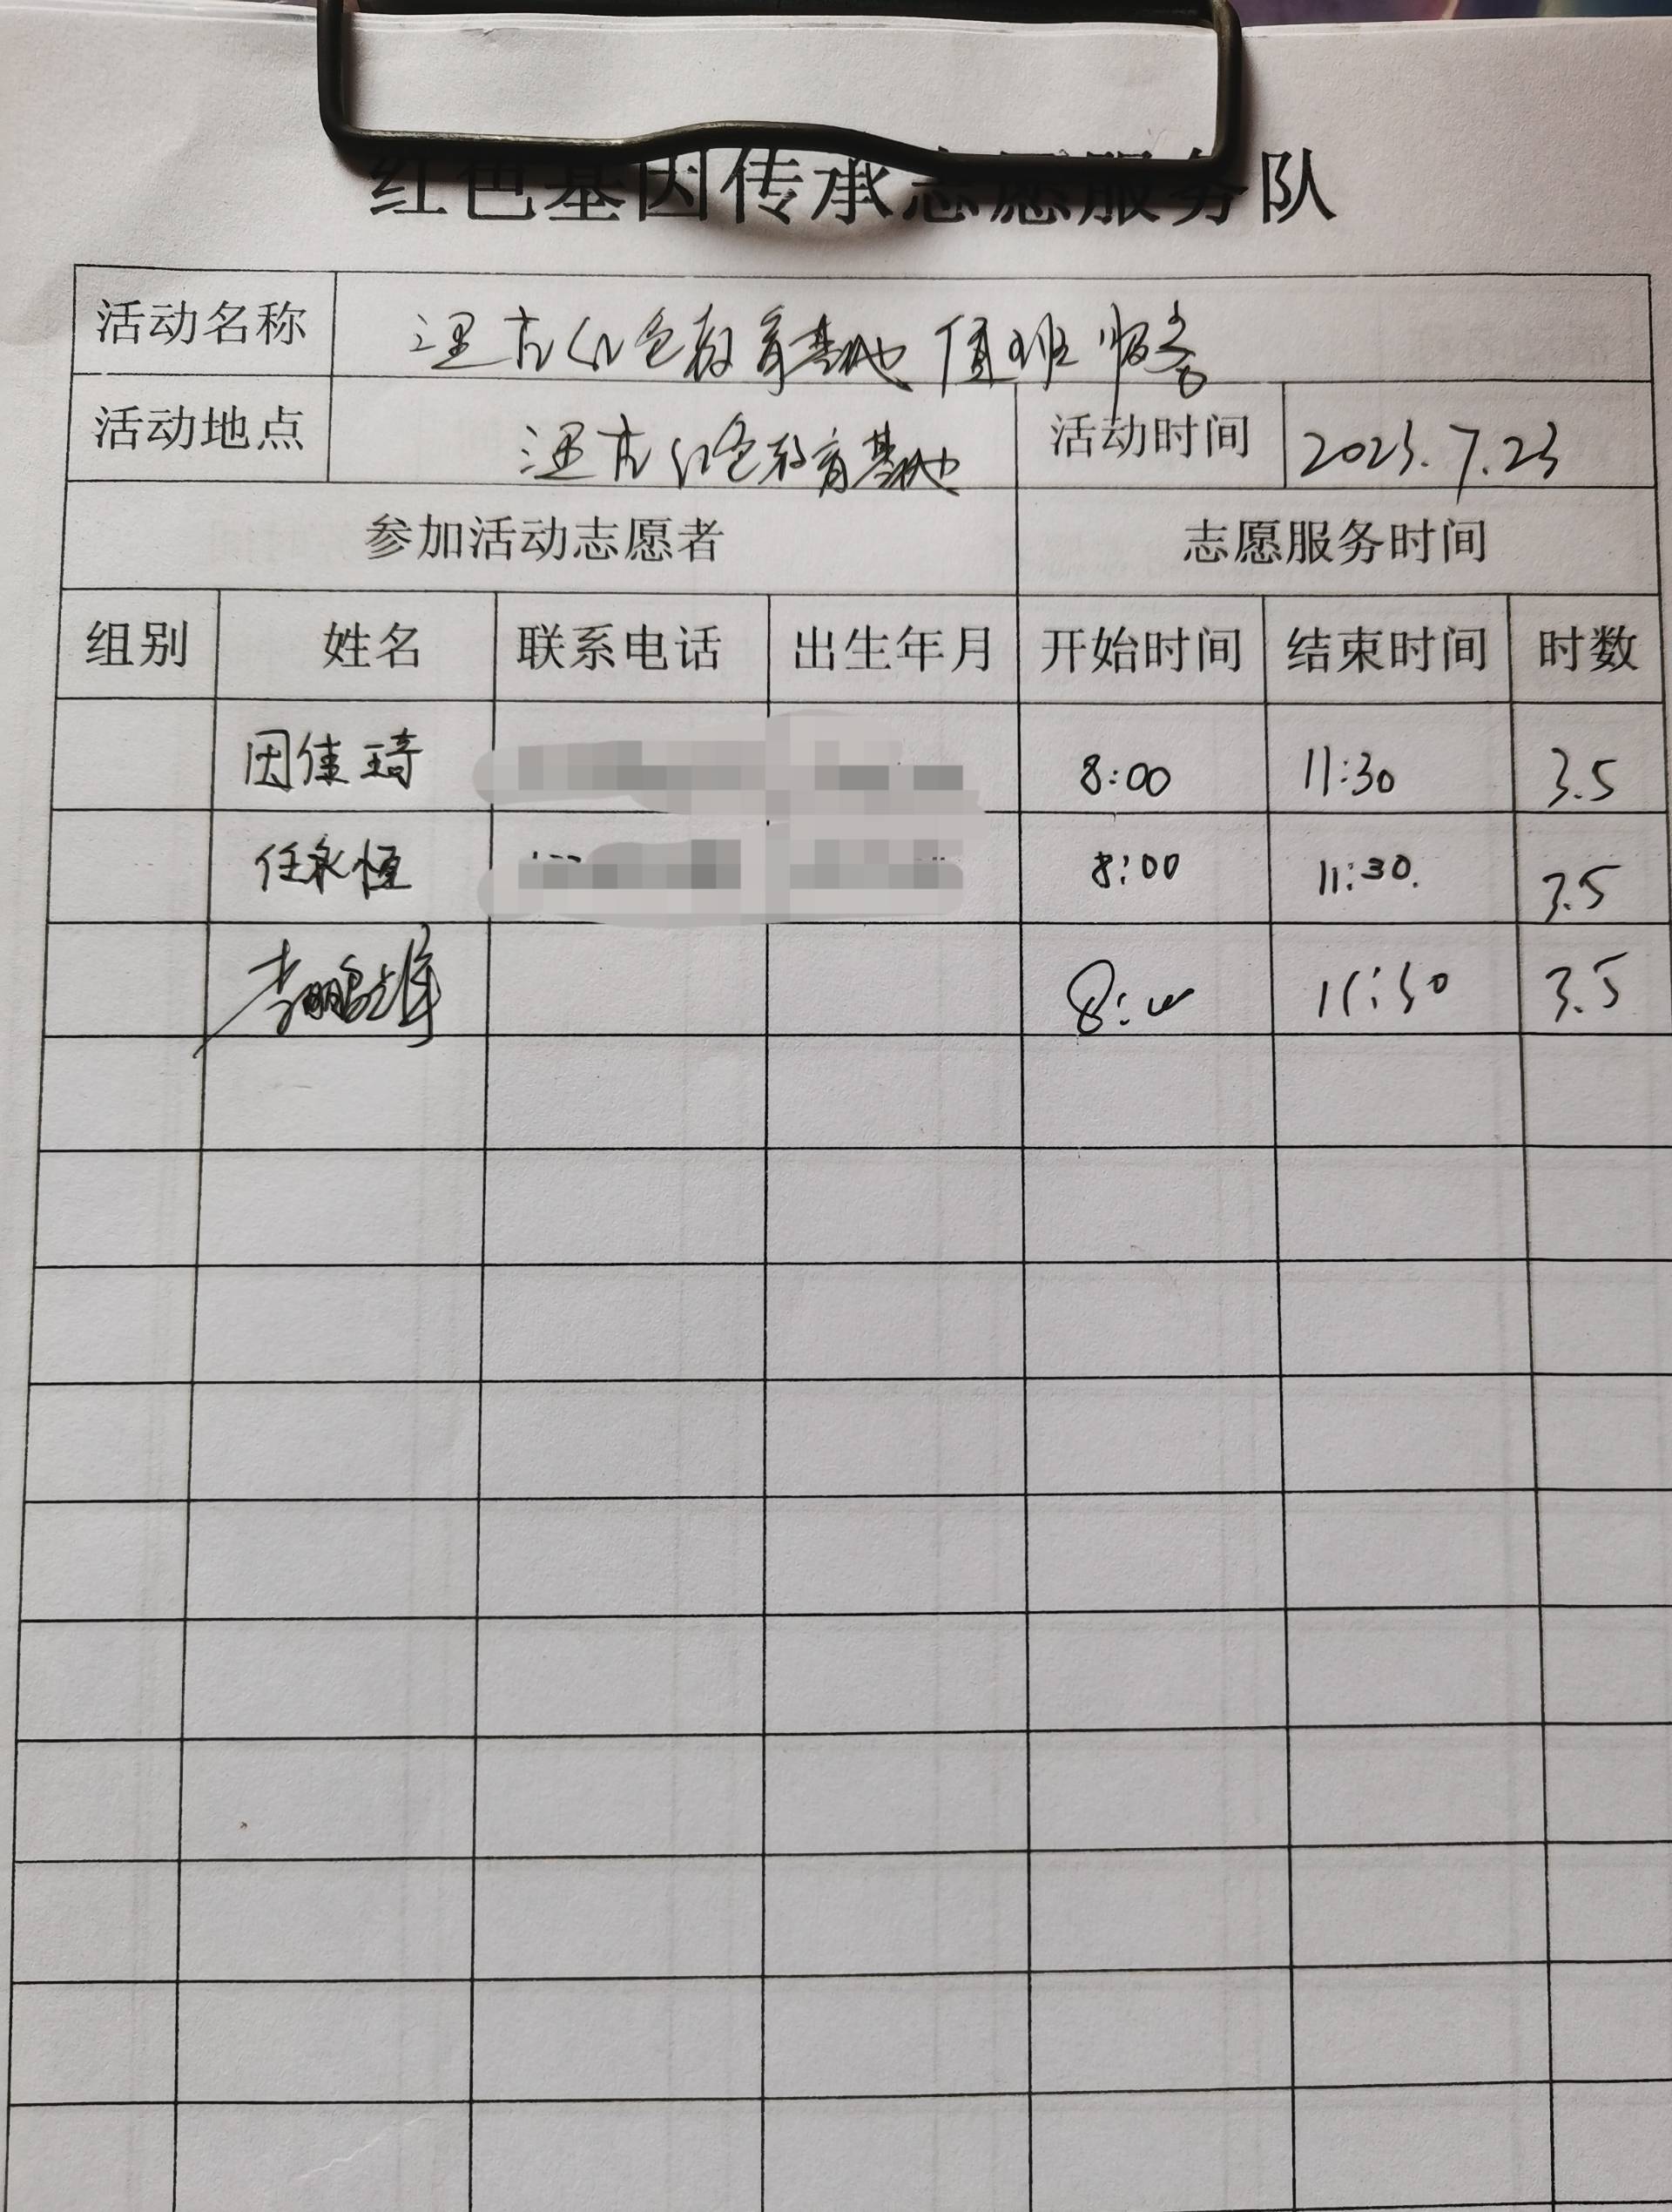 红色基因传承志愿服务队
活动名称 红色教育基地值班服务
活动地点 红色教育基地 活动时间 2023.7.23
参加活动志愿者 志愿服务时间
组别 姓名 联系电话 出生年月 开始时间 结束时间 时数
因佳琦 8:00 11:30 3.5
任永恒 8:00 11:30. 3.5
李鹏雄 8:00 11:30 3.5